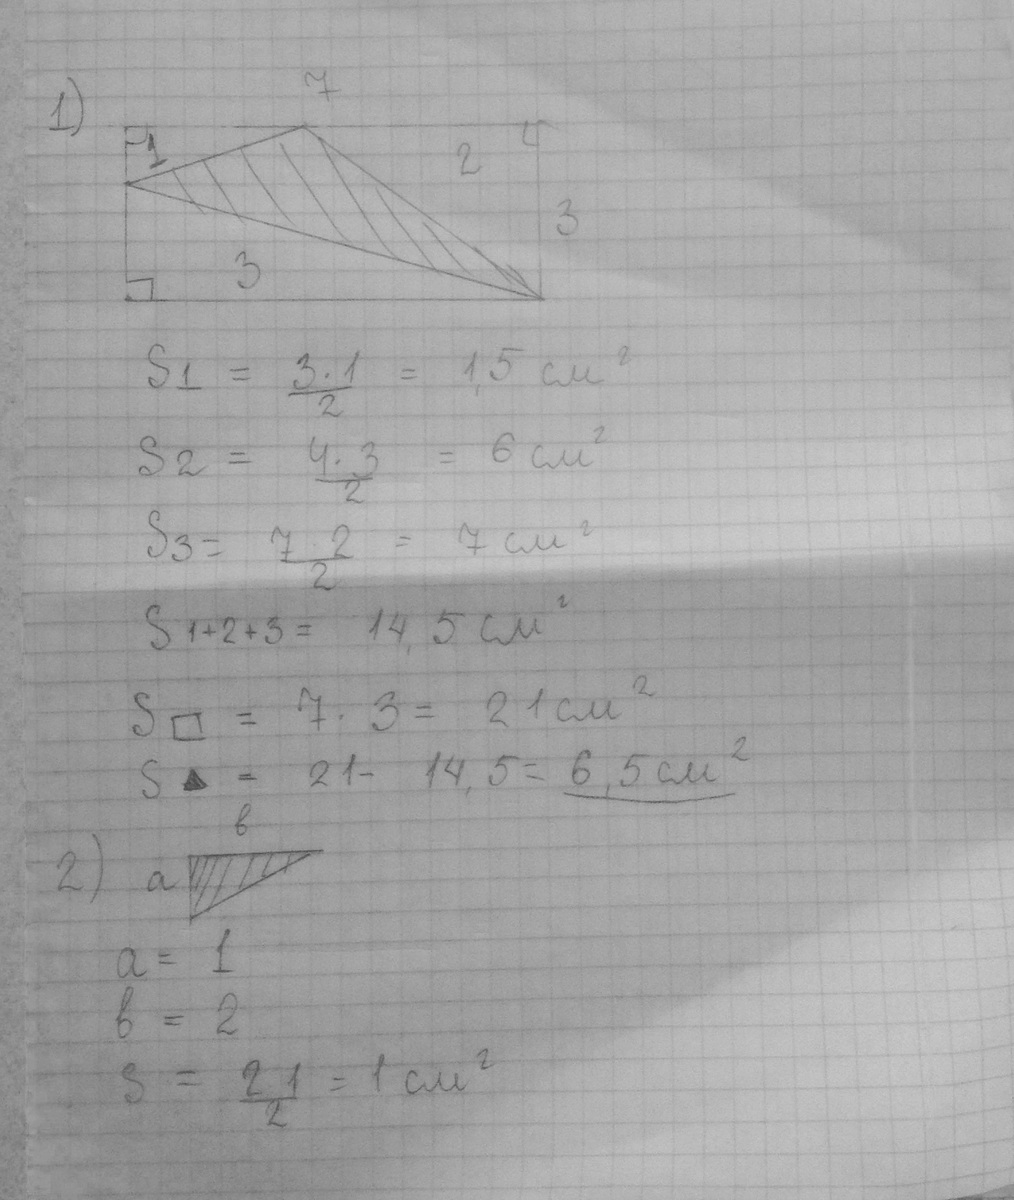 1)
7
1
2
3
3
S1 = 3·1/2 = 1,5 см²
S2 = 4·3/2 = 6 см²
S3 = 7·2/2 = 7 см²
S 1+2+3 = 14,5 см²
S□ = 7·3 = 21 см²
S▲ = 21 - 14,5 = 6,5 см²
в
2) a
a = 1
в = 2
S = 2 1/2 = 1 см²